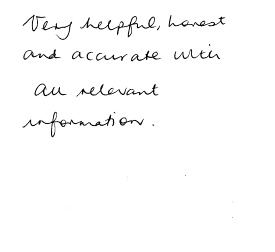 Very helpful, honest
and accurate with
all relevant
information.